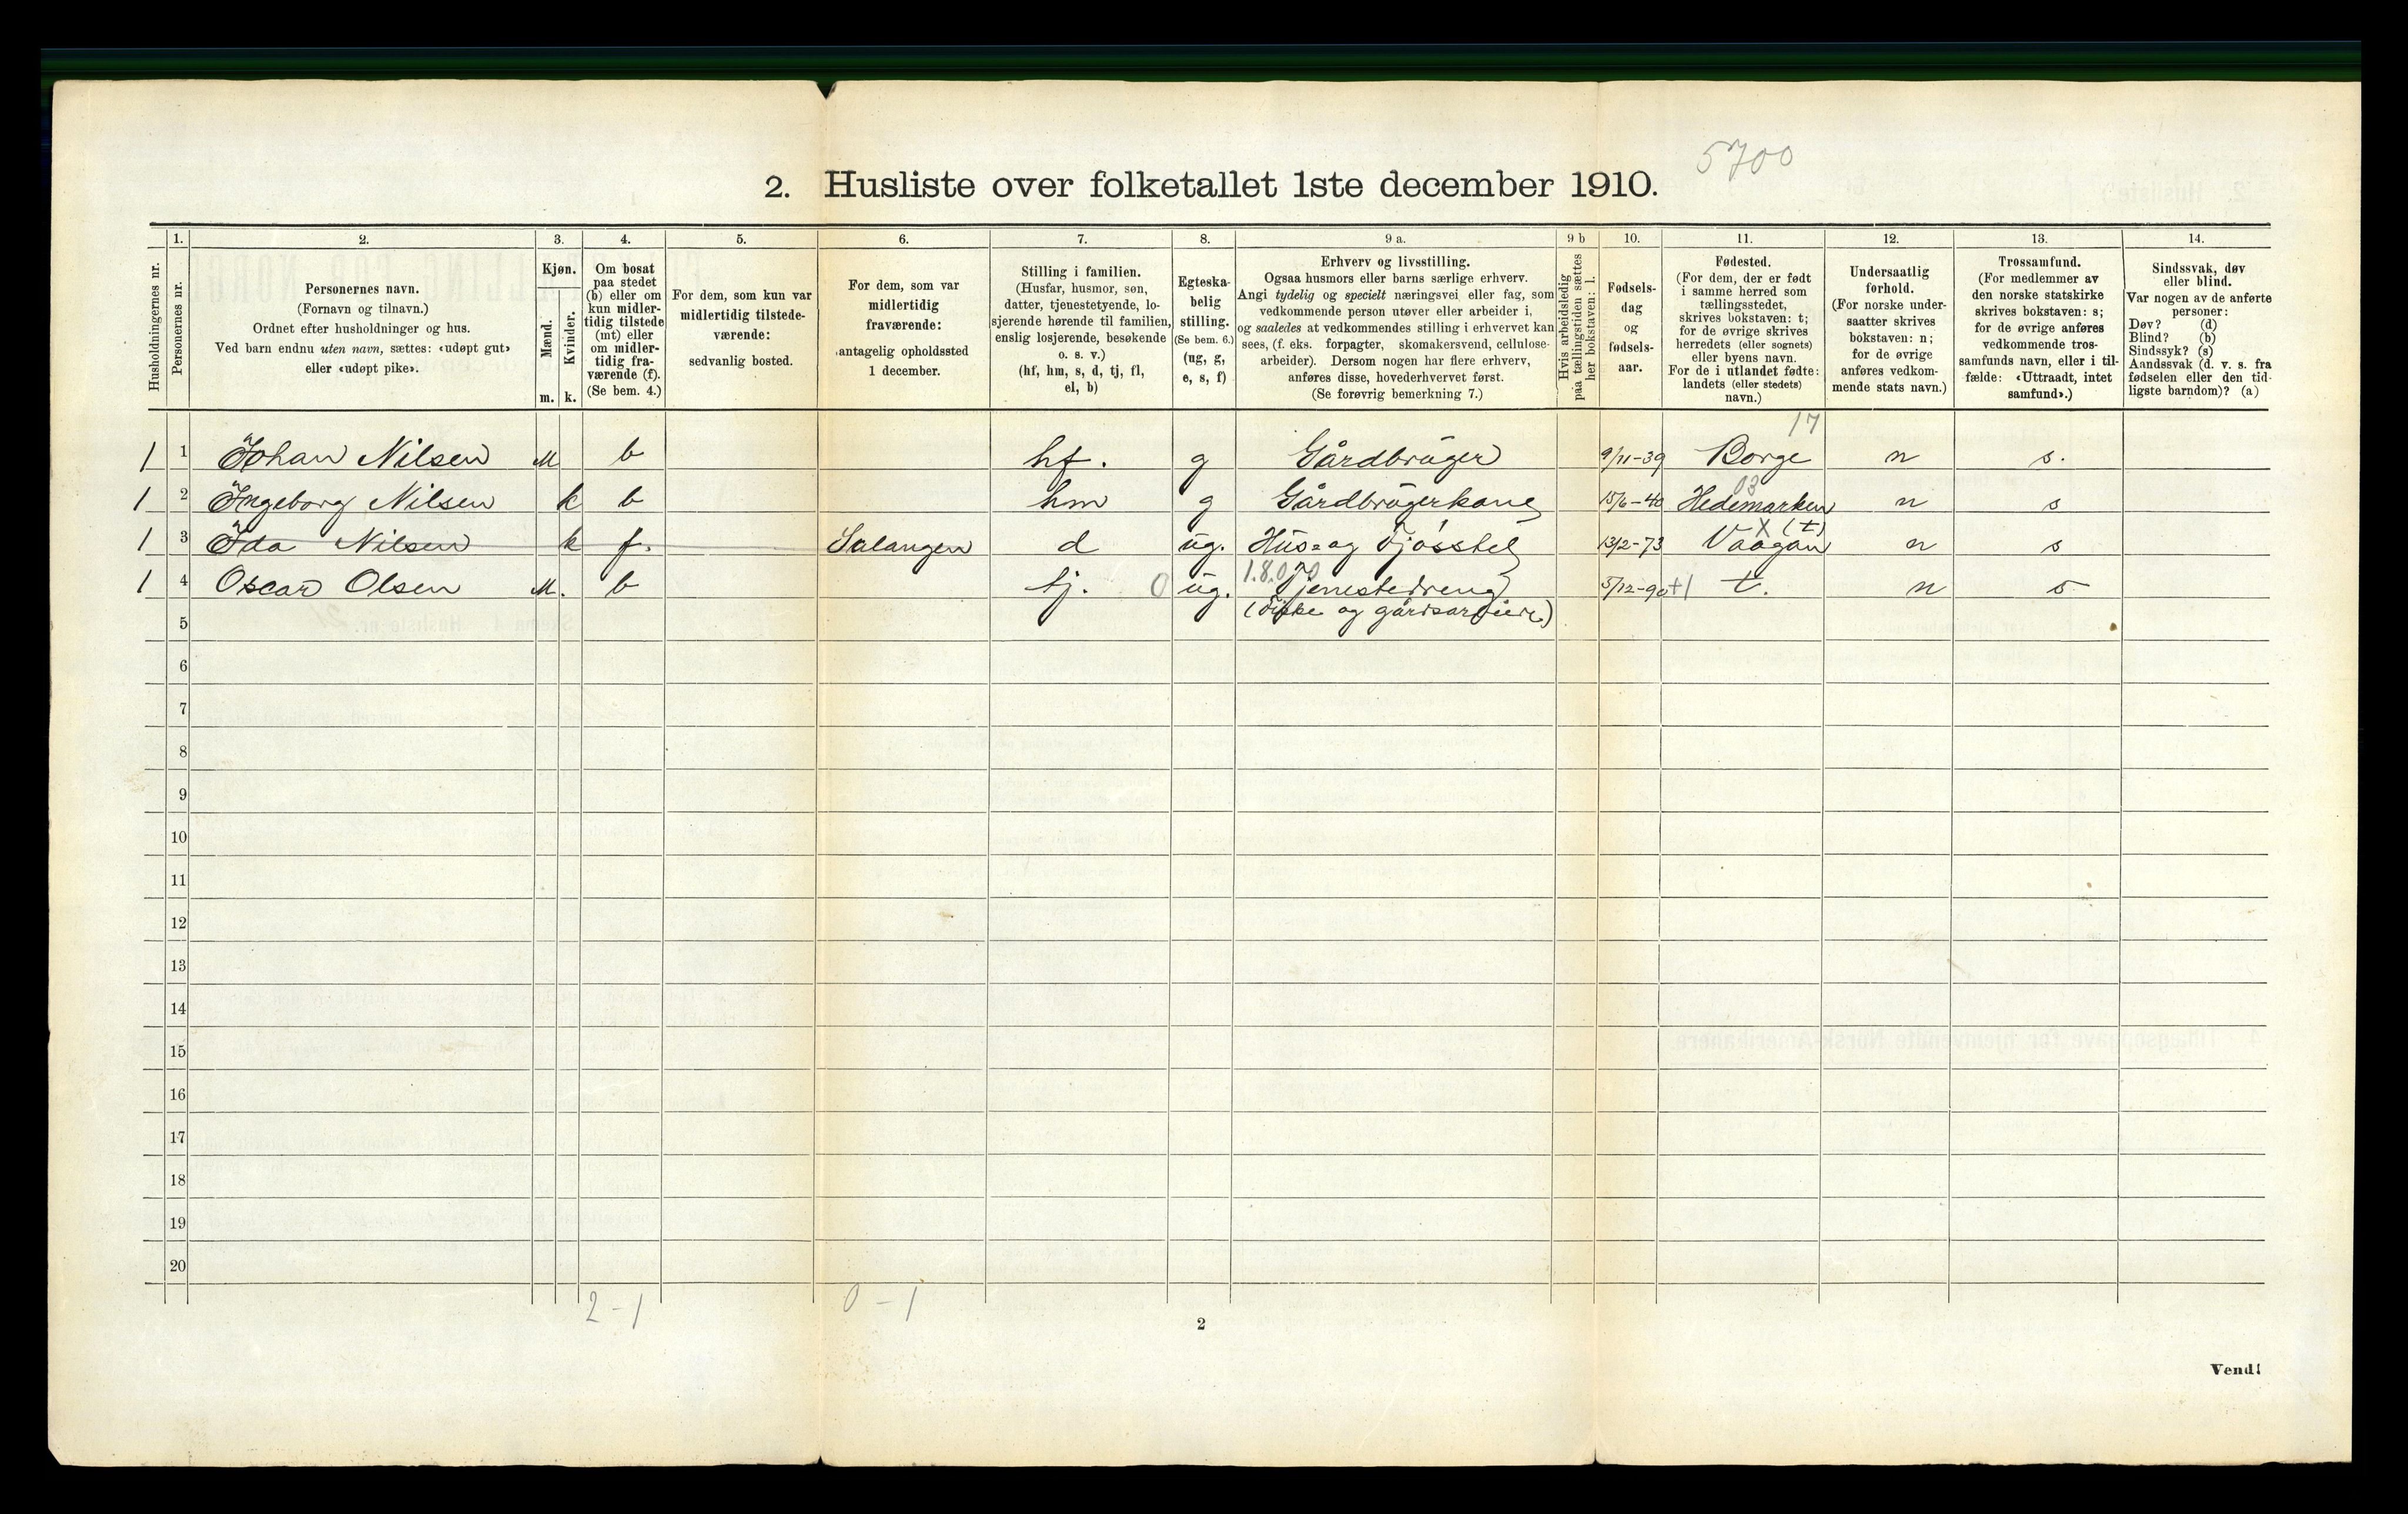 5700
2. Husliste over folketallet 1ste december 1910.
Husholdningernes nr.
1.
Personernes nr.
2.
Personernes navn.
(Fornavn og tilnavn.)
Ordnet efter husholdninger og hus.
Ved barn endnu uten navn, sættes: «udøpt gut»
eller «udøpt pike».
3.
Kjøn.
Mænd.
Kvinder.
m. k.
4.
Om bosat
paa stedet
(b) eller om
kun midler-
tidig tilstede
(mt) eller
om midler-
tidig fra-
værende (f).
(Se bem. 4.)
5.
For dem, som kun var
midlertidig tilstede-
værende:
sedvanlig bosted.
6.
For dem, som var
midlertidig
fraværende:
antagelig opholdssted
1 december.
7.
Stilling i familien.
(Husfar, husmor, søn,
datter, tjenestetyende, lo-
sjerende hørende til familien,
enslig losjerende, besøkende
o. s. v.)
(hf, hm, s, d, tj, fl,
el, b)
8.
Egteska-
belig
stilling.
(Se bem. 6.)
(ug, g,
e, s, f)
9 a.
Erhverv og livsstilling.
Ogsaa husmors eller barns særlige erhverv.
Angi tydelig og specielt næringsvei eller fag, som
vedkommende person utøver eller arbeider i,
og saaledes at vedkommendes stilling i erhvervet kan
sees, (f. eks. forpagter, skomakersvend, cellulose-
arbeider). Dersom nogen har flere erhverv,
anføres disse, hovederhvervet først.
(Se forøvrig bemerkning 7.)
9 b
Hvis arbeidsledig
paa tællingstiden sættes
her bokstaven: l.
10.
Fødsels-
dag
og
fødsels-
aar.
11.
Fødested.
(For dem, der er født
i samme herred som
tællingsstedet,
skrives bokstaven: t;
for de øvrige skrives
herredets (eller sognets)
eller byens navn.
For de i utlandet fødte:
landets (eller stedets)
navn.)
12.
Undersaatlig
forhold.
(For norske under-
saatter skrives
bokstaven: n;
for de øvrige
anføres vedkom-
mende stats navn.)
13.
Trossamfund.
(For medlemmer av
den norske statskirke
skrives bokstaven: s;
for de øvrige anføres
vedkommende tros-
samfunds navn, eller i til-
fælde: «Uttraadt, intet
samfund».)
14.
Sindssvak, døv
eller blind.
Var nogen av de anførte
personer:
Døv? (d)
Blind? (b)
Sindssyk? (s)
Aandssvak (d. v. s. fra
fødselen eller den tid-
ligste barndom)? (a)
17
1 1 Johan Nilsen M b hf. g Gårdbrüger 9/11-39 Borge n s.
03
1 2 Ingeborg Nilsen k b hm g Gårdbrügerkone 15/6-40 Hedemarken n s
X (t)
1 3 Ida Nilsen k f. Salangen d üg. Hüs= og Fjósstel 13/2-73 Vaagan n s
1.8.0 0
1 4 Oscar Olsen M. b tj. 0 üg. Tjenestedreng 5/12-90 +1 t. n s
5 (Fiske og gårdsarbeide)
6
7
8
9
10
11
12
13
14
15
16
17
18
19
20
2 - 1 0 - 1
2
Vend!